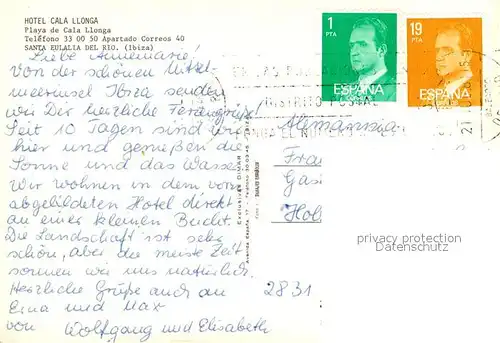 HOTEL CALA LLONGA
Playa de Cala Llonga
Teléfono 33 00 50 Apartado Correos 40
SANTA EULALIA DEL RIO. (Ibiza)
Liebe Annemarie!
Von der schönen Mittel-
meerinsel Ibiza senden
wir Dir herzliche Feriengrüße!
Seit 10 Tagen sind wir
hier und genießen die
Sonne und das Wasser.
Wir wohnen in dem vorn
abgebildeten Hotel direkt
an einer kleinen Bucht.
Die Landschaft ist sehr
schön, aber die meiste Zeit
sonnen wir uns natürlich.
Herzliche Grüße auch an
Erna und Max
von Wolfgang und Elisabeth
1
PTA
ESPAÑA
19
PTA
ESPAÑA
Alemania
Frau
Gas
Hol
2831
privacy protection
Datenschutz